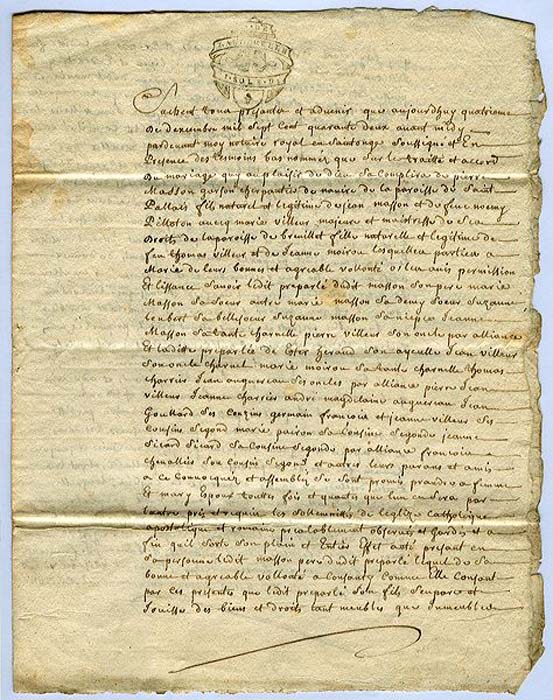 DE
LA ROCHELLE
1 SOL 4 D
Sachent tous présants et advenir que aujourdhuy quatrieme
de decembre mil sept cent quarante deux avant midy
pardevant moy notaire royal en Saintonge soussigné et En
Presence des tesmoins bas nommez que sur le traitté et accord
du mariage quy au plaisir de dieu sacomplira de pierre
Masson garson cherpantié de navire de la paroisse du Saint
Pallais fils naturel et legitime de jean masson et de feue noemy
Pelloton avecq marie villeur majeure et maistresse de sea
droits de la paroisse de breuillet fille naturelle et legitime de
feu thomas villeur et de Jeanne moirou lesquelles parties a
Marie de leurs bonnes et agreable vollonté
permission
Et lissance Savoir ledit preparlé dudit masson son pere marie
Masson sa soeur autre marie masson sa demy soeur Suzanne
sa bellesoeur Suzanne masson sa niepce Jeanne
Masson sa tante charnelle pierre villeur son oncle par alliance
Et laditte preparlée de Ester Geraud son ayeulle Jean villeur
son oncle charnel marie moirou sa tante charnelle thomas
charriés Jean auquereau ses oncles par alliance pierre Jean
villeur Jeanne charriés andré magdelaine auquereau Jean
Goullard ses Cousins germain francois et jeanne villeur ses
cousins segond marie pairon sa Cousine segonde jeanne
Sicard Sicard sa Cousine segonde par alliance francois
chevallier son Cousin segond et autres leurs parans et amis
a ce Convocquez et assemblés se sont promis prandre a femme
Et mary Espoux touttes fois et quantes que lun en sera par
lautre pres et requis les sollemnittés de leglize Catholique
apostolique et romaine prealablement observées et gardés et a
fin quil sorte son plein et Entier Effet a été présant en
sa personne ledit masson pere dudit preparlé lequel de sa
bonne et agreable vollonté a consanty Comme Elle Consant
par ces présentes que ledit preparlé son fils sempare et
Jouisse des biens et droits tant meubles que immeubles